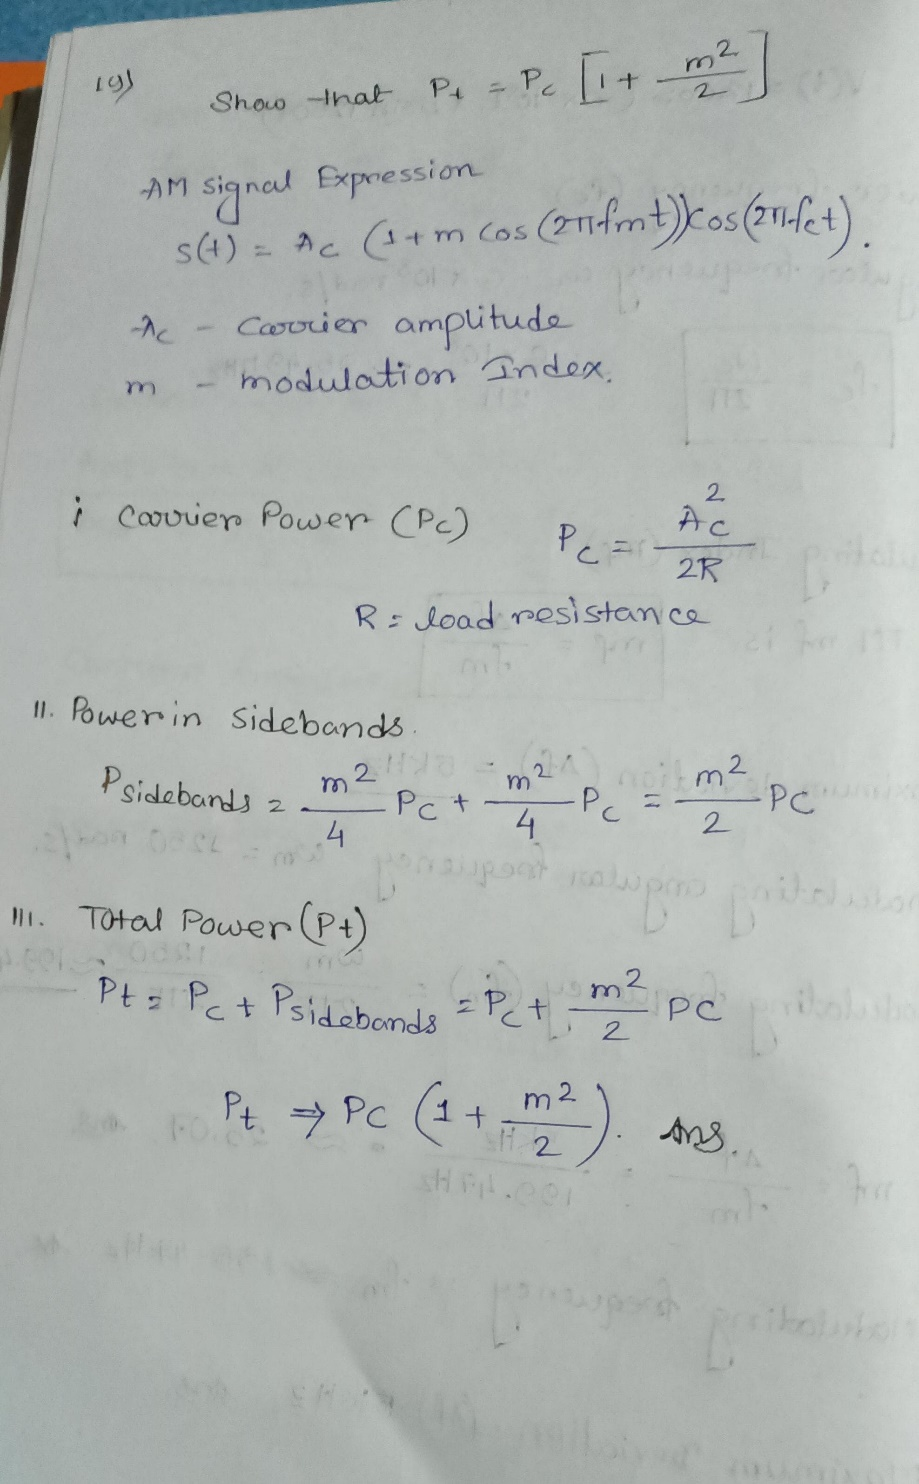 19) Show that Pt = Pc [1 + m²/2]
AM signal Expression
s(t) = Ac (1 + m cos (2πfmt)) cos (2πfct).
Ac - Carrier amplitude
m - modulation Index.
i Carrier Power (Pc) Pc = Ac²/2R
R = load resistance
II. Power in sidebands.
Psidebands = m²/4 Pc + m²/4 Pc = m²/2 PC
III. Total Power (Pt)
Pt = Pc + Psidebands = Pc + m²/2 PC
Pt ⇒ PC (1 + m²/2). Ans.